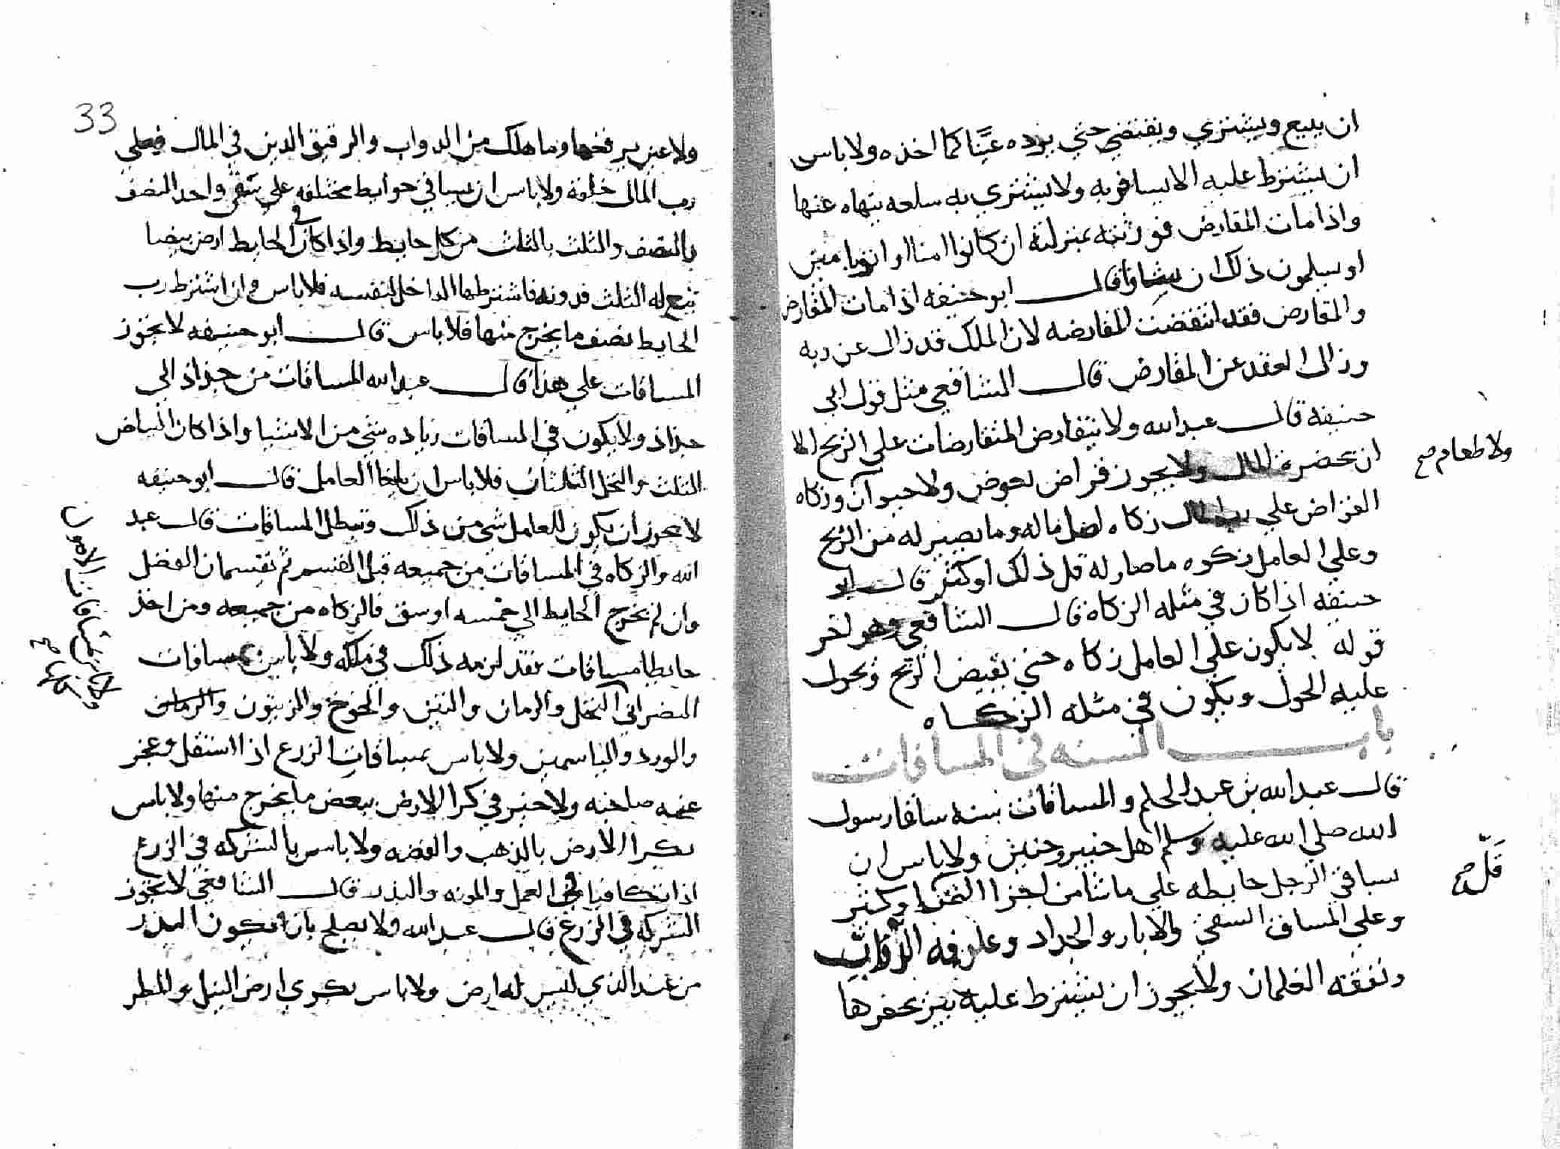 ان يبيع ويشتري ويقتضي حتي يرده عينا كما اخذه ولا باس
ان يشترط عليه الا يسافر به ولا يشتري به سلعه ينهاه عنها
واذا مات المقارض فورثته بمنزلته ان كانوا امنا او اتوا بامين
او يسلمون ذلك ان شاوا قال ابو حنيفه اذا مات المقارض
والمقارض فقد انتقضت المقارضه لان الملك قد زال عن ربه
وزال العقد عن المقارض قال الشافعي مثل قول ابي
حنيفه قال عبد الله ولا يتقارض المتقارضات علي الربح الا
ان بحضرة المال ولا يجوز قراض بعوض ولا حيوان وزكاه
ولا طعام صح
القراض علي رب المال زكاه اصل ماله وما يصير له من الربح
وعلي العامل زكوه ما صار له قل ذلك او كثر قال ابو
حنيفه اذا كان في مثله الزكاة قال الشافعي وهو اخر
قوله لا يكون علي العامل زكاه حتي يقبض الربح ويحول
عليه الحول ويكون في مثله الزكاه
باب السنه في المساقات
قال عبد الله بن عبد الحكم والمساقات سنه ساقا رسول
الله صلي الله عليه وسلم اهل خيبر وحنين ولا باس ان
يساقي الرجل حايطه علي ما شا من اجزا الثمر او كثر
قلّ صح
وعلي المساقي السقي والابار والجداد وعلوفه الدواب
ونفقه الغلمان ولا يجوز ان يشترط عليه بير يحفرها
33
ولا عين يرفعها وما هلك من الدواب والرقيق الذين في المال فعلي
رب المال خلفه ولا باس ان يساقي حوايط مختلفه علي سقي واحد النصف
بالنصف والثلث بالثلث من كل حايط واذا كان في الحايط ارض بيضا
تبع له الثلث فدونه فاشترطها الداخل لنفسه فلا باس وان اشترط رب
الحايط نصف ما يخرج منها فلا باس قال ابو حنيفه لا يجوز
المساقات علي هذا قال عبد الله المساقات من جذاذ الي
جذاذ ولا يكون في المساقات زياده شي من الاشيا واذا كان البياض
الثلث والنخل الثلثان فلا باس ان يلغا العامل قال ابو حنيفه
لا يجوز ان يكون للعامل شي من ذلك وتبطل المساقات قال عبد
الله والزكاه في المساقات من جميعه قبل القسم ثم يقتسمان الفضل
وان لم يخرج الحايط الي خمسه اوسق فالزكاه من جميعه ومن اخذ
حايطا مساقات فقد لزمه ذلك في ملكه ولا باس بمساقات
النصراني النخل والرمان والتين والخوخ والزيتون والرمان
والورد والياسمين ولا باس بمساقات الزرع اذا استقل وعجز
عنه صاحبه ولا خير في كرا الارض ببعض ما يخرج منها ولا باس
بكرا الارض بالذهب والفضه ولا باس بالشركه في الزرع
اذا تكافيا في العمل والمونه والبذر قال الشافعي لا يجوز
الشركه في الزرع قال عبد الله ولا يصلح بان يكون البذر
من عند الذي ليس له ارض ولا باس بكري ارض النيل والمطر